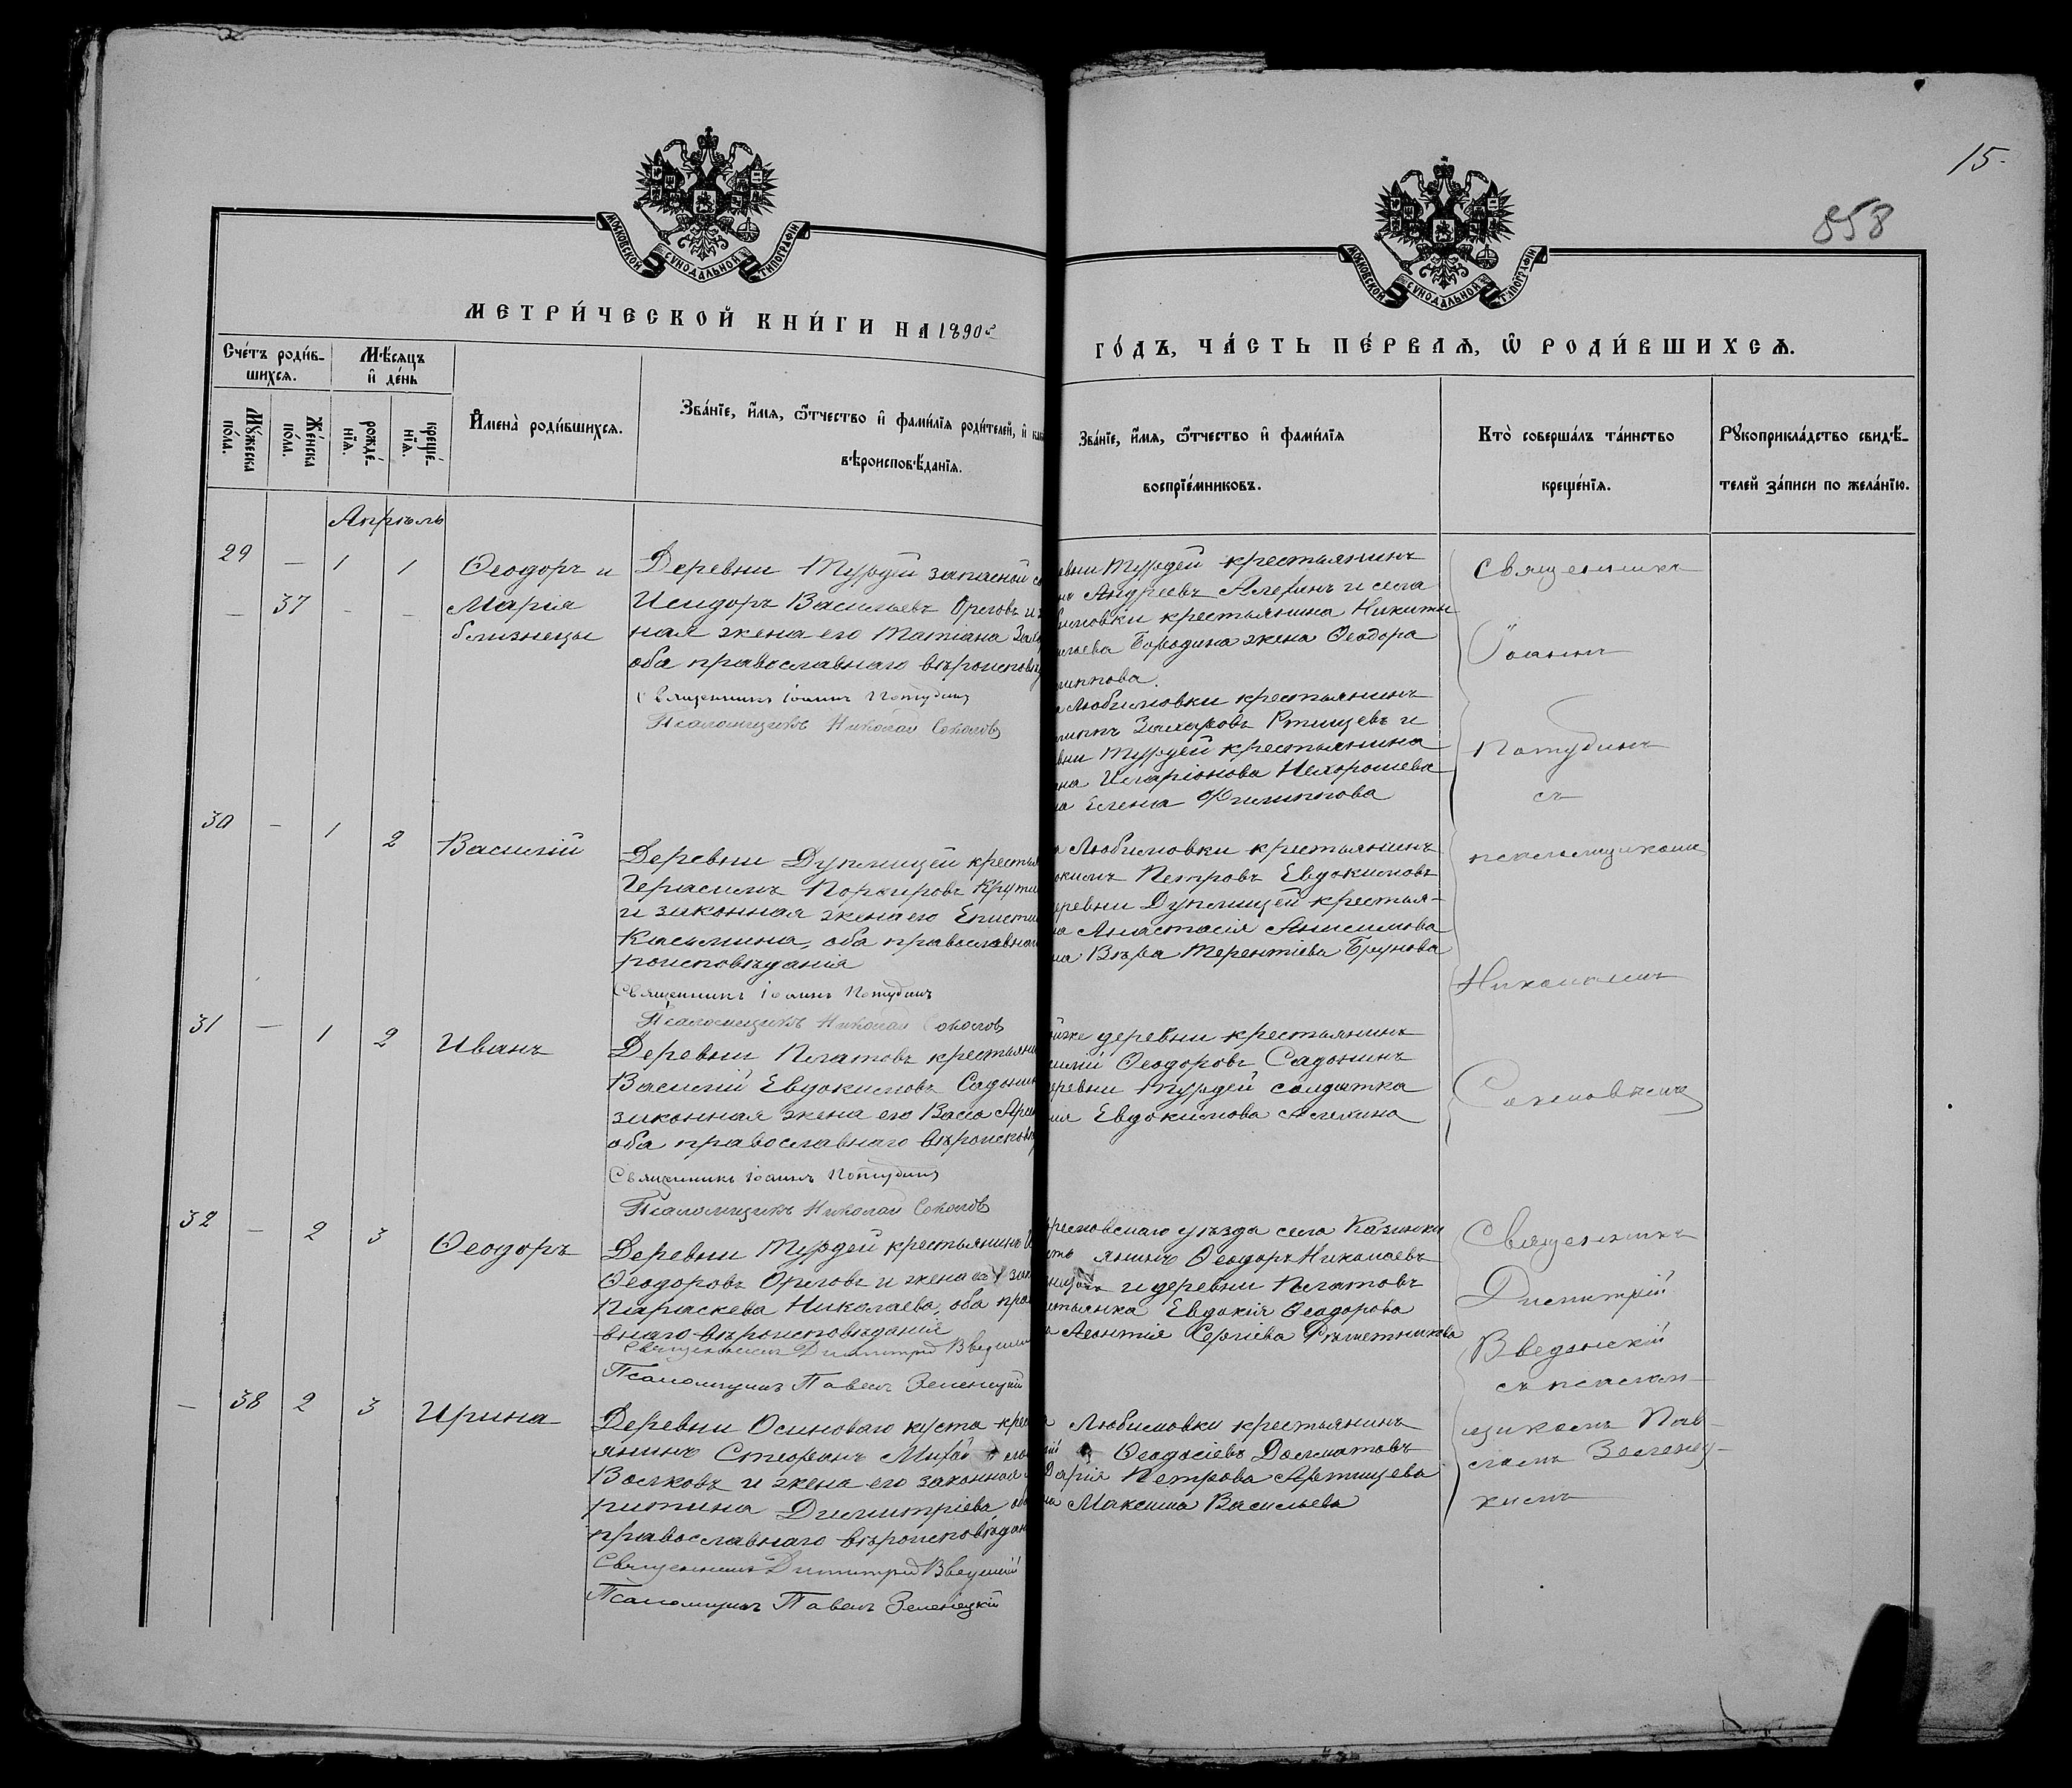 15.
858
МОСКОВСКОЙ СѴНОДАЛЬНОЙ ТИПОГРАФІИ
МОСКОВСКОЙ СѴНОДАЛЬНОЙ ТИПОГРАФІИ
МЕТРИ́ЧЕСКОЙ КНИ́ГИ НА 1890
ГО́ДЪ, ЧА́СТЬ ПЕ́РВАѦ, Ѡ РОДИ́ВШИХСѦ.
Сче́тъ роди́в-
шихсѧ.
Мꙋжеска по́ла.
Же́нска по́ла.
Мѣ́сѧцъ
и҆ де́нь
рожде́-
нїѧ.
креще́-
нїѧ.
И҆мена̀ роди́вшихсѧ.
Зва́нїе, и҆́мѧ, ѻ҆́тчество и҆ фами́лїѧ роди́телей, и҆ как
вѣроисповѣ́данїѧ.
Зва́нїе, и҆́мѧ, ѻ҆́тчество и҆ фами́лїѧ
воспрїе́мниковъ.
Кто̀ соверша́лъ та́инство
креще́нїѧ.
Рꙋкоприкла́дство свидѣ́-
телей за́писи по жела́нїю.
Апрѣль
29 — 1 1 Ѳеодоръ и
— 37 - - Марія
близнецы
Деревни Турдей запасной
Исидоръ Васильевъ Орловъ и
ная жена его Татіана
оба православнаго вѣроисповѣд
Священникъ Іоаннъ Потудинъ
Псаломщикъ Николай Соколовъ
евни Турдей крестьянинъ
нъ Андреевъ Алехинъ и села
бимовки крестьянина Никиты
ильева Бородина жена Ѳеодора
липпова.
Любимовки крестьянинъ
липпъ Захаровъ Ртищевъ и
вни Турдей крестьянина
на Иларіонова Нехорошева
на Елена Филиппова
Священникъ
Іоаннъ
Потудинъ
съ
псаломщикомъ
Николаемъ
Соколовымъ
30 — 1 2 Василій
Деревни Дуплищей крестья
Герасимъ Порфировъ
и законная жена его Епистим
Касьмина, оба православнаго
роисповѣданія
Священникъ Іоаннъ Потудинъ
Псаломщикъ Николай Соколовъ
Любимовки крестьянинъ
окимъ Петровъ Евдокимовъ
еревни Дуплищей крестья-
на Анастасія Анисимова
на Вѣра Терентіева Брунова
31 — 1 2 Иванъ
Деревни Платовъ крестьяни
Василій Евдокимовъ Садонин
законная жена его Васса
оба православнаго вѣроисповѣ
Священникъ Іоаннъ Потудинъ
Псаломщикъ Николай Соколовъ
йже деревни крестьянинъ
силій Ѳеодоровъ Садонинъ
еревни Турдей солдатка
ія Евдокимова Алехина
32 — 2 3 Ѳеодоръ
Деревни Турдей крестьянинъ
Ѳеодоровъ Орловъ и жена его зак
Параскева Николаева, оба пра
внаго вѣроисповѣданія
Священникъ Димитрій Введенскій
Псаломщикъ Павелъ Зеленецкій
фремовскаго уѣзда села Казинки
янинъ Ѳеодоръ Николаевъ
и деревни Платовъ
стьянка Евдокія Ѳеодорова
Леонтія Сергіева Рѣшетникова
Священникъ
Димитрій
Введенскій
съ псалом-
щикомъ Пав-
ломъ Зеленец-
кимъ
— 38 2 3 Ирина
Деревни Осиноваго куста крес
янинъ Стефанъ
Волковъ и жена его законная
ритина Димитріева
православнаго вѣроисповѣдан
Священникъ Димитрій Введенскій
Псаломщикъ Павелъ Зеленецкій
Любимовки крестьянинъ
Ѳеодосіевъ Долматовъ
Дарія Петрова Артищева
на Максима Васильева